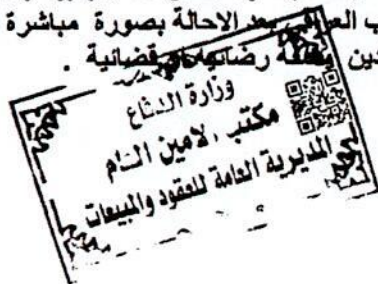 ب العراقي بعد الاحالة بصورة مباشرة
دين بصفة رضائية او قضائية .
وزارة الدفاع
مكتب . لامين العام
المديرية العامة للعقود والمبيعات